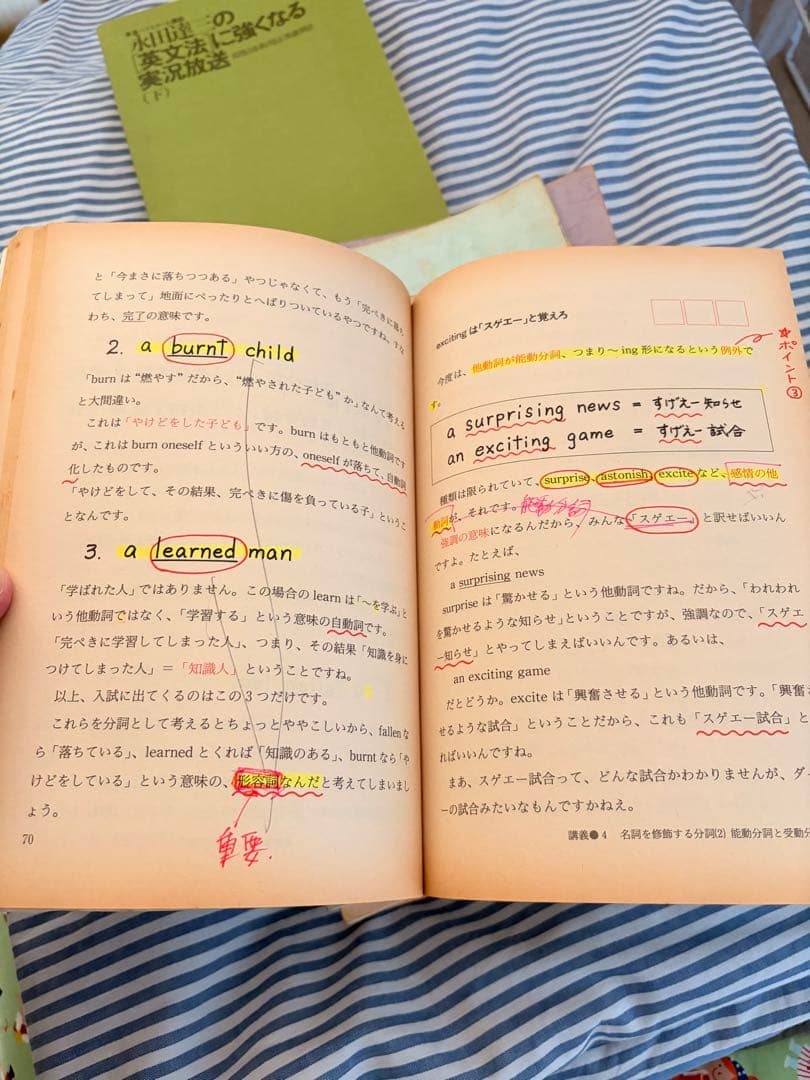 永田達三の
[英文法]に強くなる
実況放送
(下)
と「今まさに落ちつつある」やつじゃなくて、もう「完ぺきに落ち
てしまって」地面にぺったりとへばりついているやつですね。すな
わち、完了の意味です。
2. a burnt child
「burn は“燃やす”だから、“燃やされた子ども”か」なんて考える
と大間違い。
これは「やけどをした子ども」です。burn はもともと他動詞です
が、これは burn oneself といういい方の、oneself が落ちて、自動詞
化したものです。
「やけどをして、その結果、完ぺきに傷を負っている子」というこ
となんです。
3. a learned man
「学ばれた人」ではありません。この場合の learn は「〜を学ぶ」と
いう他動詞ではなく、「学習する」という意味の自動詞です。
「完ぺきに学習してしまった人」、つまり、その結果「知識を身に
つけてしまった人」＝「知識人」ということですね。
以上、入試に出てくるのはこの3つだけです。
これらを分詞として考えるとちょっとややこしいから、fallen な
ら「落ちている」、learned とくれば「知識のある」、burnt なら「や
けどをしている」という意味の、形容詞なんだと考えてしまいまし
ょう。
重要
70
exciting は「スゲエー」と覚えろ
☆ポイント③
今度は、他動詞が能動分詞、つまり〜ing 形になるという例外で
す。
a surprising news = すげえー知らせ
an exciting game = すげえー試合
種類は限られていて、surprise、astonish、excite など、感情の他
動詞が、それです。能動分詞
強調の意味になるんだから、みんな「スゲエー」と訳せばいいん
ですよ。たとえば、
a surprising news
surprise は「驚かせる」という他動詞ですね。だから、「われわれ
を驚かせるような知らせ」ということですが、強調なので、「スゲエ
ー知らせ」とやってしまえばいいんです。あるいは、
an exciting game
だとどうか。excite は「興奮させる」という他動詞です。「興奮さ
せるような試合」ということだから、これも「スゲエー試合」と
ればいいんですね。
まあ、スゲエー試合って、どんな試合かわかりませんが、ダ
ーの試合みたいなもんですかねえ。
講義●4 名詞を修飾する分詞(2) 能動分詞と受動分